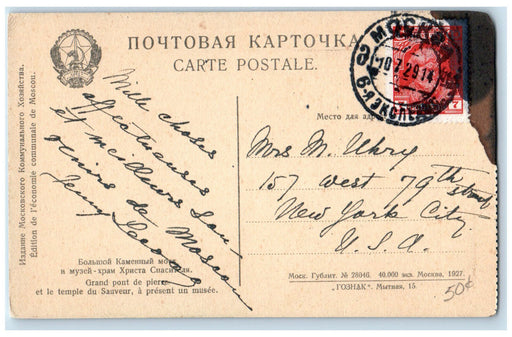 ПОЧТОВАЯ КАРТОЧКА
CARTE POSTALE.
МОСКВА
10.7.29 14
6-я ЭКСПЕД
7
Место для адр
Издание Московского Коммунального Хозяйства.
Édition de l'économie communale de Moscou.
Mille choses
affectueuses
et meilleurs sou-
venirs de Moscou
Jenny
Mrs M. Uhry
157 West 79th street
New York City
U.S.A.
Большой Каменный мост
и музей-храм Христа Спасителя.
Grand pont de pierre
et le temple du Sauveur, à présent un musée.
Моск. Гублит. № 28046. 40.000 экз. Москва, 1927.
„ГОЗНАК". Мытная, 15.
50¢